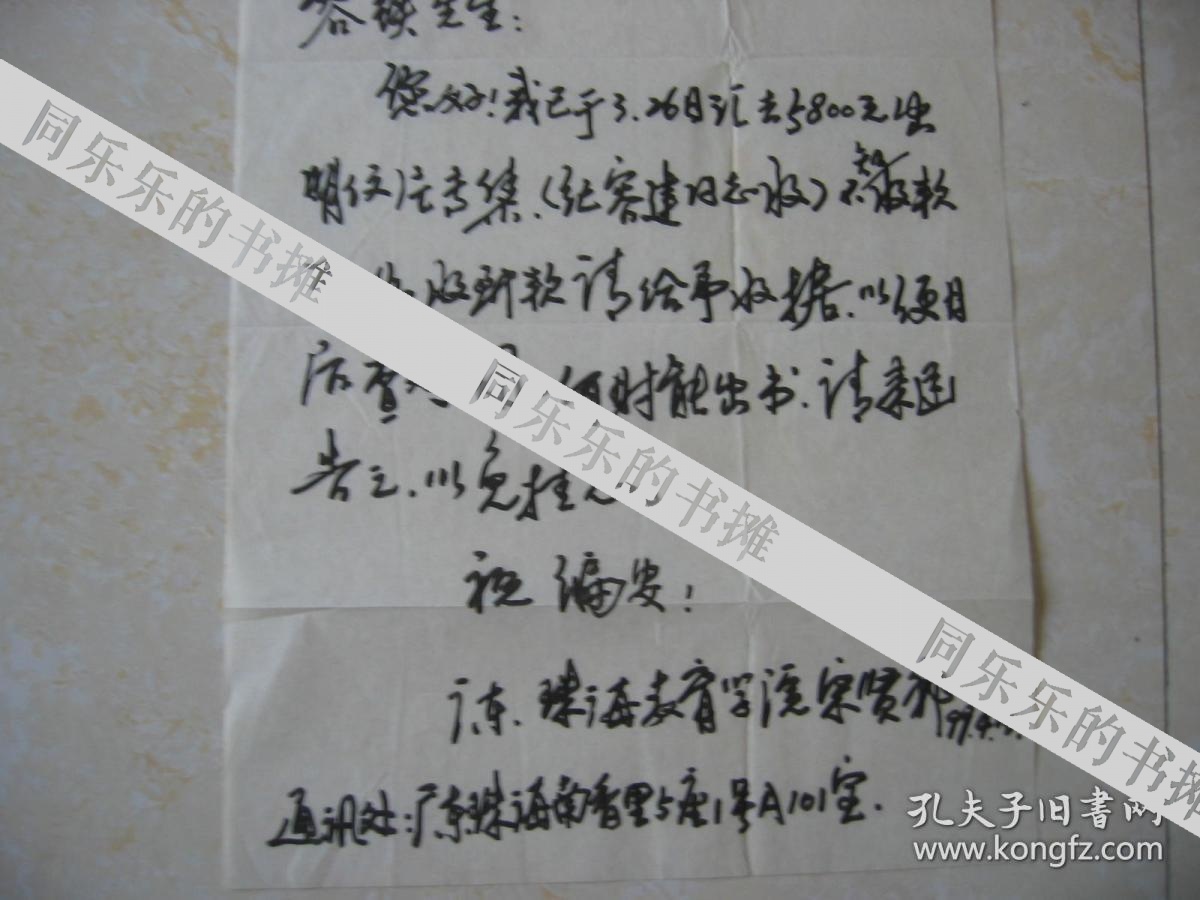 容铁先生:
您好!我已于3.26日汇去5800元出
明信片专集.(纪容建同志收)不知收款
收到款请给予收据.以便日
后查 何时能出书.请来函
告之.以免挂念
祝编安!
广东.珠海教育学院宋贤邦
通讯处:广东珠海南香里5座1号A101室.
同乐乐的书摊
同乐乐的书摊
同乐乐的书摊
孔夫子旧書网
www.kongfz.com